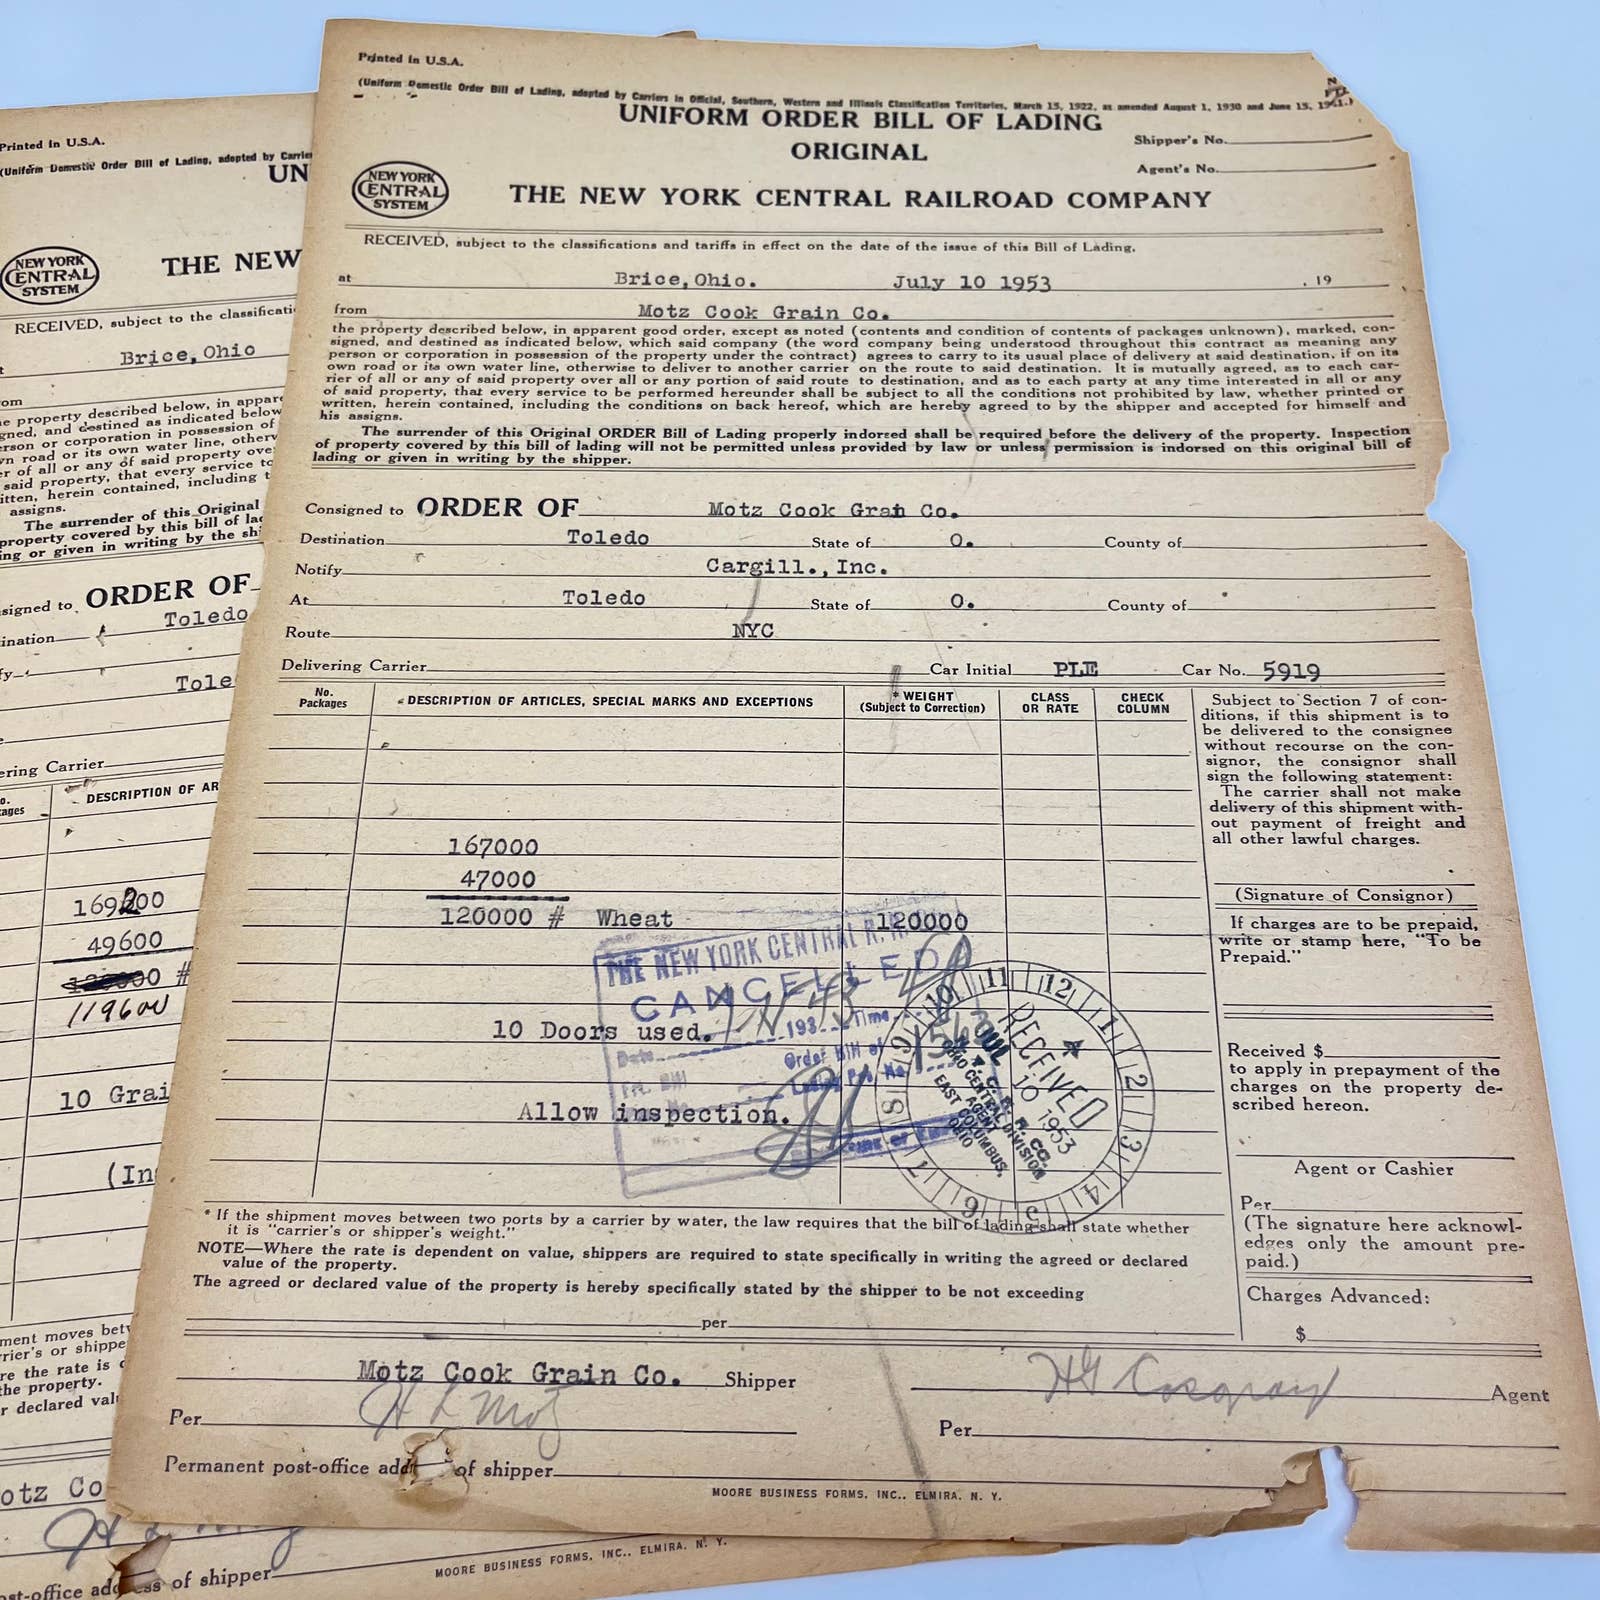 Printed in U.S.A.
(Uniform Domestic Order Bill of Lading, adopted by Carrie
UN
NEW YORK
CENTRAL
SYSTEM
THE NEW
RECEIVED, subject to the classificati
Brice, Ohio
om
e property described below, in appar
gned, and destined as indicated below
erson or corporation in possession of
n road or its own water line, otherw
er of all or any of said property ove
said property, that every service to
itten, herein contained, including t
assigns.
The surrender of this Original
property covered by this bill of la
ing or given in writing by the shi
signed to ORDER OF
ination Toledo
fy
Tole
ering Carrier
o.
ages
DESCRIPTION OF AR
169200
49600
#
119600
10 Grai
(In
ment moves bet
rier's or shippe
re the rate is d
the property.
r declared val
otz Co
ost-office add ess of shipper
MOORE BUSINESS FORMS, INC., ELMIRA, N. Y.
Printed in U.S.A.
(Uniform Domestic Order Bill of Lading, adopted by Carriers in Official, Southern, Western and Illinois Classification Territories, March 15, 1922, as amended August 1, 1930 and June 15, 1941.)
UNIFORM ORDER BILL OF LADING
Shipper's No.
ORIGINAL
Agent's No.
NEW YORK
CENTRAL
SYSTEM
THE NEW YORK CENTRAL RAILROAD COMPANY
RECEIVED, subject to the classifications and tariffs in effect on the date of the issue of this Bill of Lading,
at Brice, Ohio. July 10 1953 , 19
from Motz Cook Grain Co.
the property described below, in apparent good order, except as noted (contents and condition of contents of packages unknown), marked, con-
signed, and destined as indicated below, which said company (the word company being understood throughout this contract as meaning any
person or corporation in possession of the property under the contract) agrees to carry to its usual place of delivery at said destination, if on its
own road or its own water line, otherwise to deliver to another carrier on the route to said destination. It is mutually agreed, as to each car-
rier of all or any of said property over all or any portion of said route to destination, and as to each party at any time interested in all or any
of said property, that every service to be performed hereunder shall be subject to all the conditions not prohibited by law, whether printed or
written, herein contained, including the conditions on back hereof, which are hereby agreed to by the shipper and accepted for himself and
his assigns.
The surrender of this Original ORDER Bill of Lading properly indorsed shall be required before the delivery of the property. Inspection
of property covered by this bill of lading will not be permitted unless provided by law or unless permission is indorsed on this original bill of
lading or given in writing by the shipper.
Consigned to ORDER OF Motz Cook Grah Co.
Destination Toledo State of O. County of
Notify Cargill., Inc.
At Toledo State of O. County of
Route NYC
Delivering Carrier Car Initial PLE Car No. 5919
No.
Packages
DESCRIPTION OF ARTICLES, SPECIAL MARKS AND EXCEPTIONS
* WEIGHT
(Subject to Correction)
CLASS
OR RATE
CHECK
COLUMN
167000
47000
120000 # Wheat 120000
10 Doors used.
Allow inspection.
THE NEW YORK CENTRAL R.R.
CANCELLED
Date 193 Time
Frt. Bill
Order Bill of
Lading Pro. No.
11 12 1 2 3 4 5 6 7 8 9 10
RECEIVED
JUL 10 1953
N. Y. C. R. R. CO.
OHIO CENTRAL DIVISION
AGENT
EAST COLUMBUS,
OHIO
Subject to Section 7 of con-
ditions, if this shipment is to
be delivered to the consignee
without recourse on the con-
signor, the consignor shall
sign the following statement:
The carrier shall not make
delivery of this shipment with-
out payment of freight and
all other lawful charges.
(Signature of Consignor)
If charges are to be prepaid,
write or stamp here, "To be
Prepaid."
Received $
to apply in prepayment of the
charges on the property de-
scribed hereon.
Agent or Cashier
Per
(The signature here acknowl-
edges only the amount pre-
paid.)
Charges Advanced:
$
* If the shipment moves between two ports by a carrier by water, the law requires that the bill of lading shall state whether
it is "carrier's or shipper's weight."
NOTE—Where the rate is dependent on value, shippers are required to state specifically in writing the agreed or declared
value of the property.
The agreed or declared value of the property is hereby specifically stated by the shipper to be not exceeding
per
Motz Cook Grain Co. Shipper
H G Cosgray Agent
Per H L Motz
Per
Permanent post-office add of shipper
MOORE BUSINESS FORMS, INC., ELMIRA, N. Y.